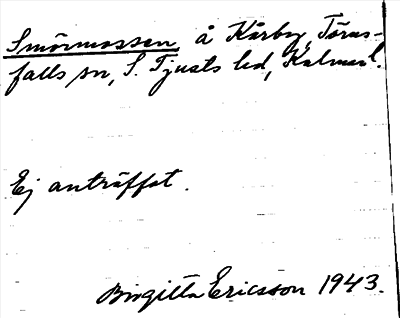 Smörmossen, å Kårby, Törns-
falls sn, S. Tjusts hd, Kalmar l.
Ej anträffat.
Birgitta Ericsson 1943.